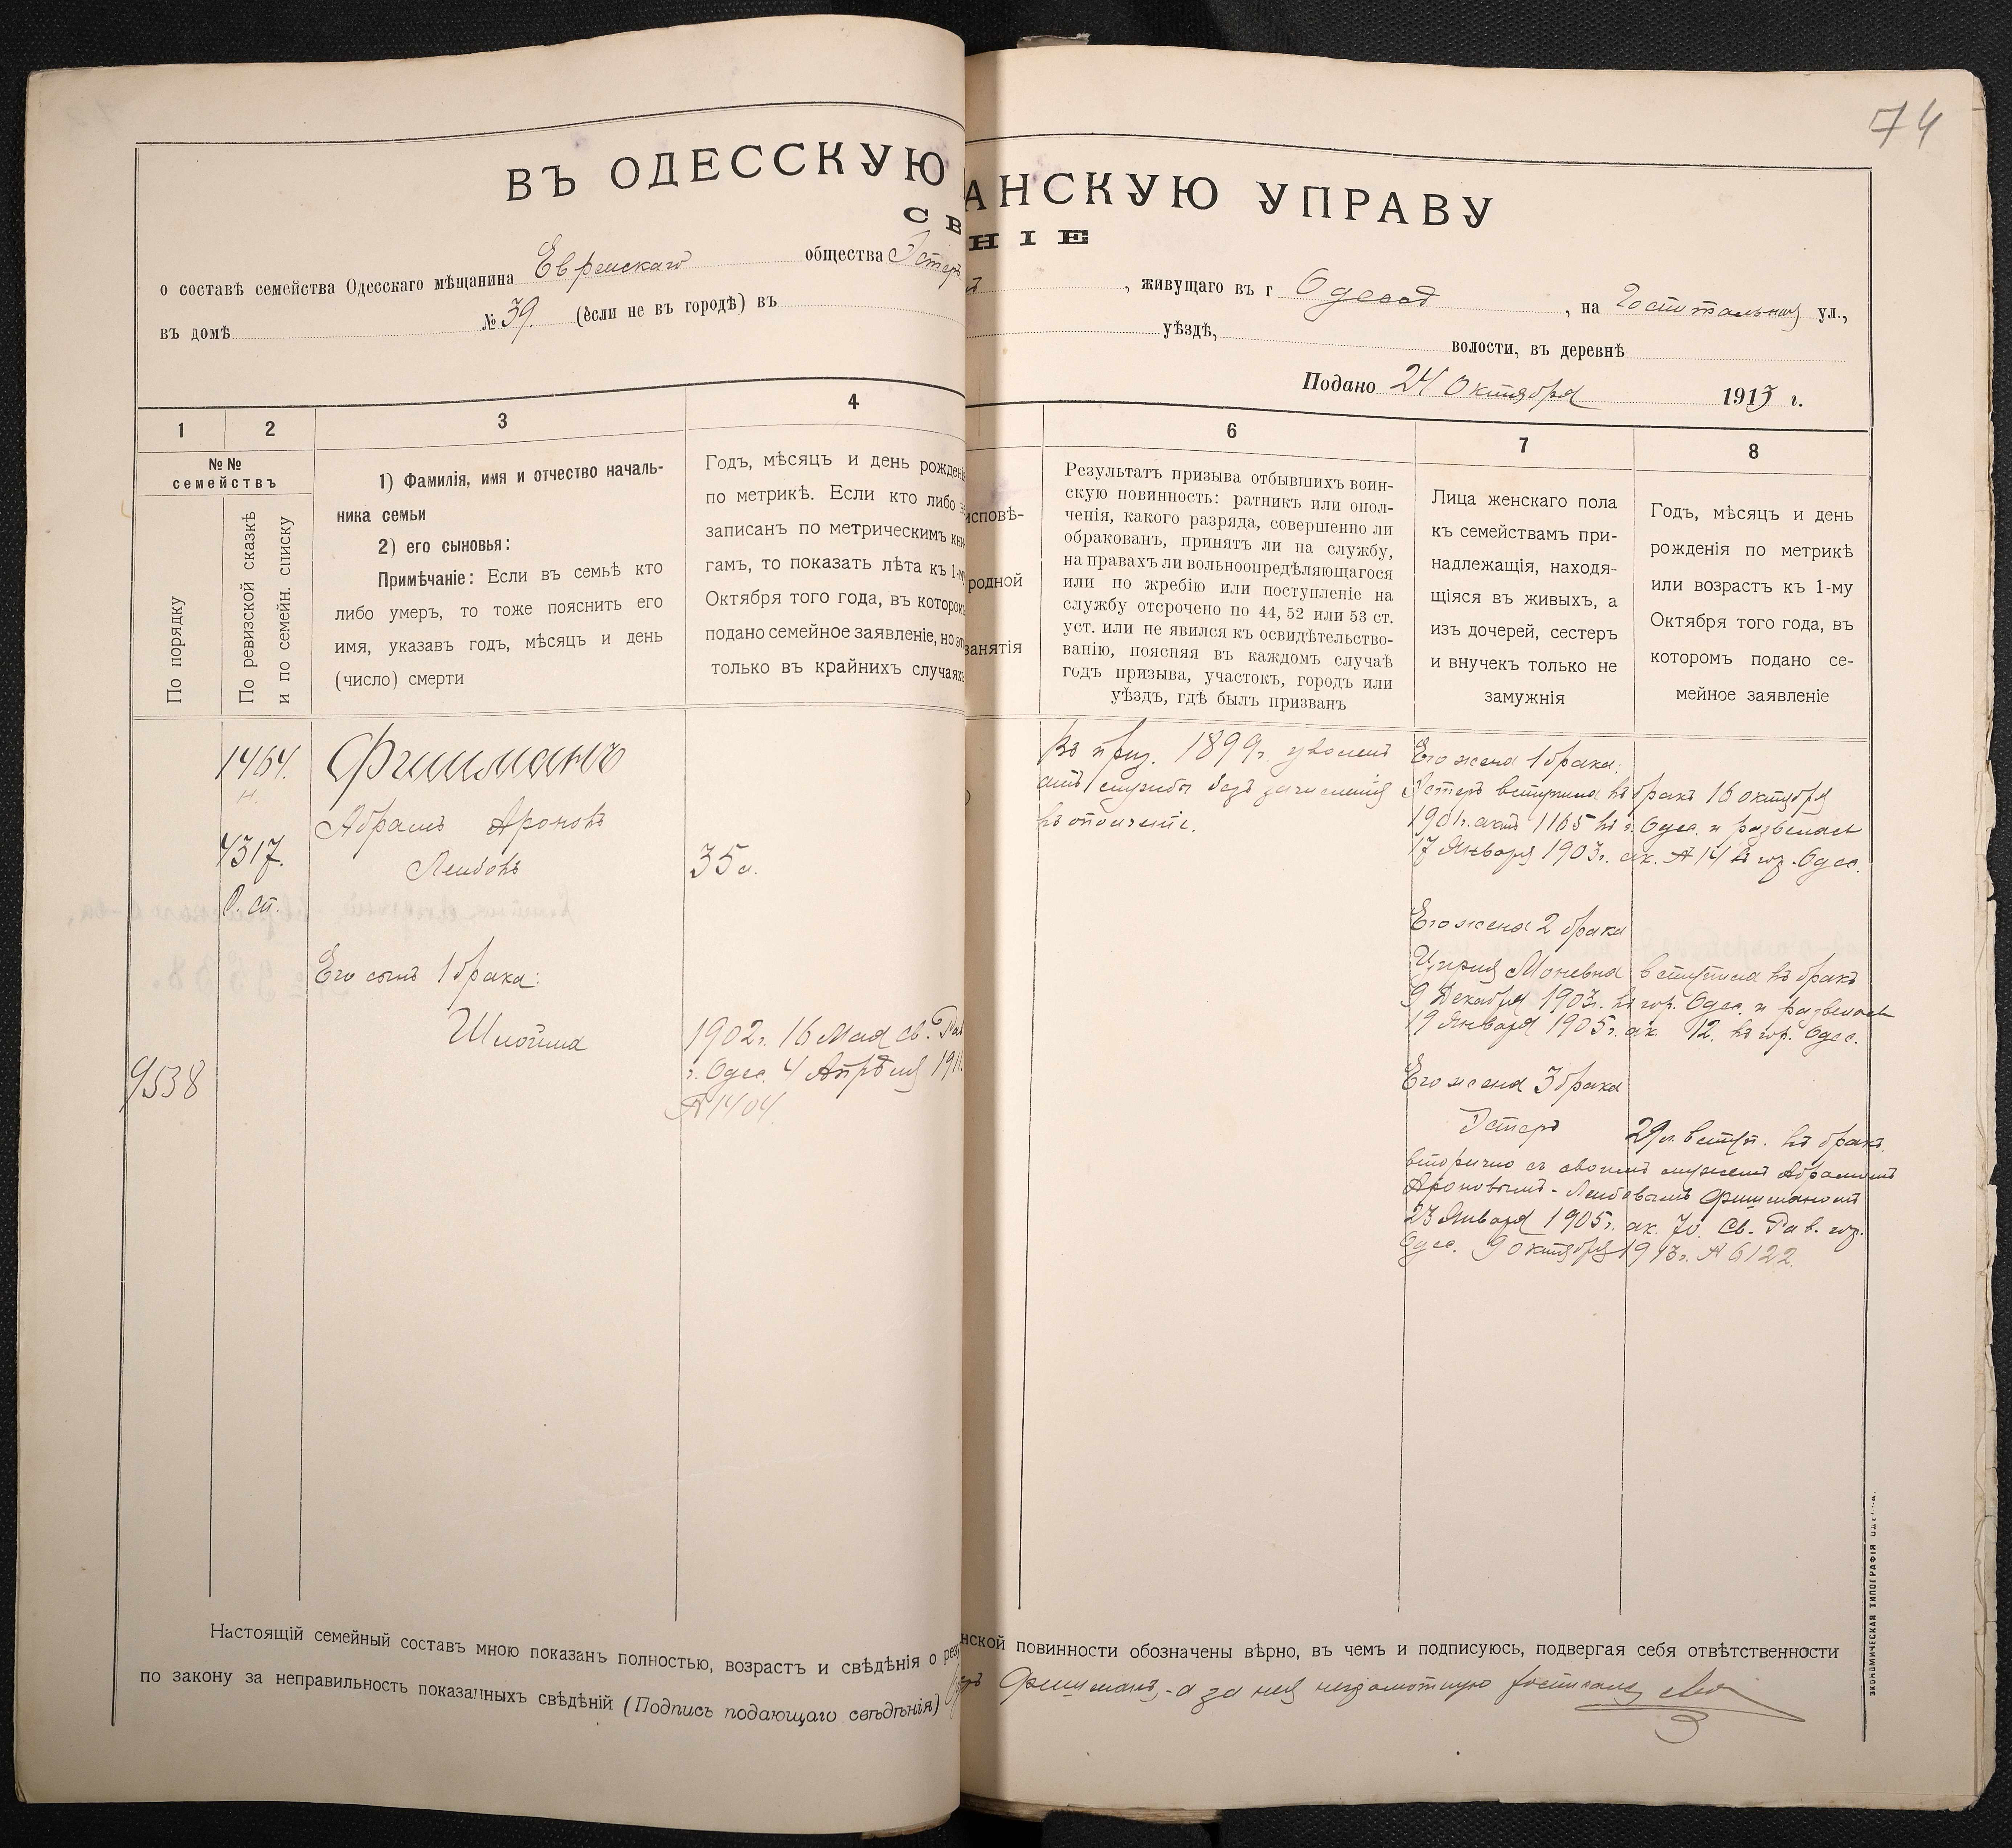 74
ВЪ ОДЕССКУЮ АНСКУЮ УПРАВУ
СВ НІЕ
о составѣ семейства Одесскаго мѣщанина Еврейскаго общества Эстеръ , живущаго въ г Одессѣ , на Госпитальной ул.,
въ домѣ № 39. (если не въ городѣ) въ уѣздѣ, волости, въ деревнѣ
Подано 24 Октября 1913 г.
1 2 3 4 6 7 8
№№ семействъ
По порядку
По ревизской сказкѣ и по семейн. списку
1) Фамилія, имя и отчество началь-
ника семьи
2) его сыновья:
Примѣчаніе: Если въ семьѣ кто
либо умеръ, то тоже пояснить его
имя, указавъ годъ, мѣсяцъ и день
(число) смерти
Годъ, мѣсяцъ и день рожденія
по метрикѣ. Если кто либо не
записанъ по метрическимъ кни-
гамъ, то показать лѣта къ 1-му
Октября того года, въ которомъ
подано семейное заявленіе, но это
только въ крайнихъ случаяхъ
исповѣ-
родной
занятія
Результатъ призыва отбывшихъ воин-
скую повинность: ратникъ или опол-
ченія, какого разряда, совершенно ли
обракованъ, принятъ ли на службу,
на правахъ ли вольноопредѣляющагося
или по жребію или поступленіе на
службу отсрочено по 44, 52 или 53 ст.
уст. или не явился къ освидѣтельство-
ванію, поясняя въ каждомъ случаѣ
годъ призыва, участокъ, городъ или
уѣздъ, гдѣ былъ призванъ
Лица женскаго пола
къ семействамъ при-
надлежащія, находя-
щіяся въ живыхъ, а
изъ дочерей, сестеръ
и внучекъ только не
замужнія
Годъ, мѣсяцъ и день
рожденія по метрикѣ
или возрастъ къ 1-му
Октября того года, въ
которомъ подано се-
мейное заявленіе
1464.
н.
4317.
О. сп.
9538
Фишманъ
Абрамъ Ароновъ
Лейбовъ 35 л.
Его сынъ 1 брака:
Шлойма
1902 г. 16 Мая св. Рав
г. Одес. 4 Апрѣля 191
№ 1404
Въ приз. 1899 г. уволенъ
отъ службы безъ зачисленія
въ ополченіе.
Его жена 1 брака:
Эстеръ вступила въ бракъ 16 октября
1901 г. актъ 1165 въ г. Одес. и развелась
17 Января 1903 г. ак. № 14 въ гор. Одес.
Его жена 2 брака
Ципря Моневна вступила въ бракъ
9 Декабря 1903 г. въ гор. Одес. и развелась
19 Января 1905 г. ак. 12. въ гор. Одес.
Его жена 3 брака
Эстеръ 29 л. вступ. въ бракъ
вторично съ своимъ мужемъ Абрамомъ
Ароновымъ-Лейбовымъ Фишманомъ
23 Января 1905 г. ак. 70. Св. Рав. гор.
Одес. 9 октября 1913 г. № 6122.
Настоящій семейный составъ мною показанъ полностью, возрастъ и свѣдѣнія о рез нской повинности обозначены вѣрно, въ чемъ и подписуюсь, подвергая себя отвѣтственности
по закону за неправильность показанныхъ свѣдѣній (Подпись подающаго свѣдѣнія) Фишманъ, а за нея неграмотную росписался
ЭКОНОМИЧЕСКАЯ ТИПОГРАФІЯ